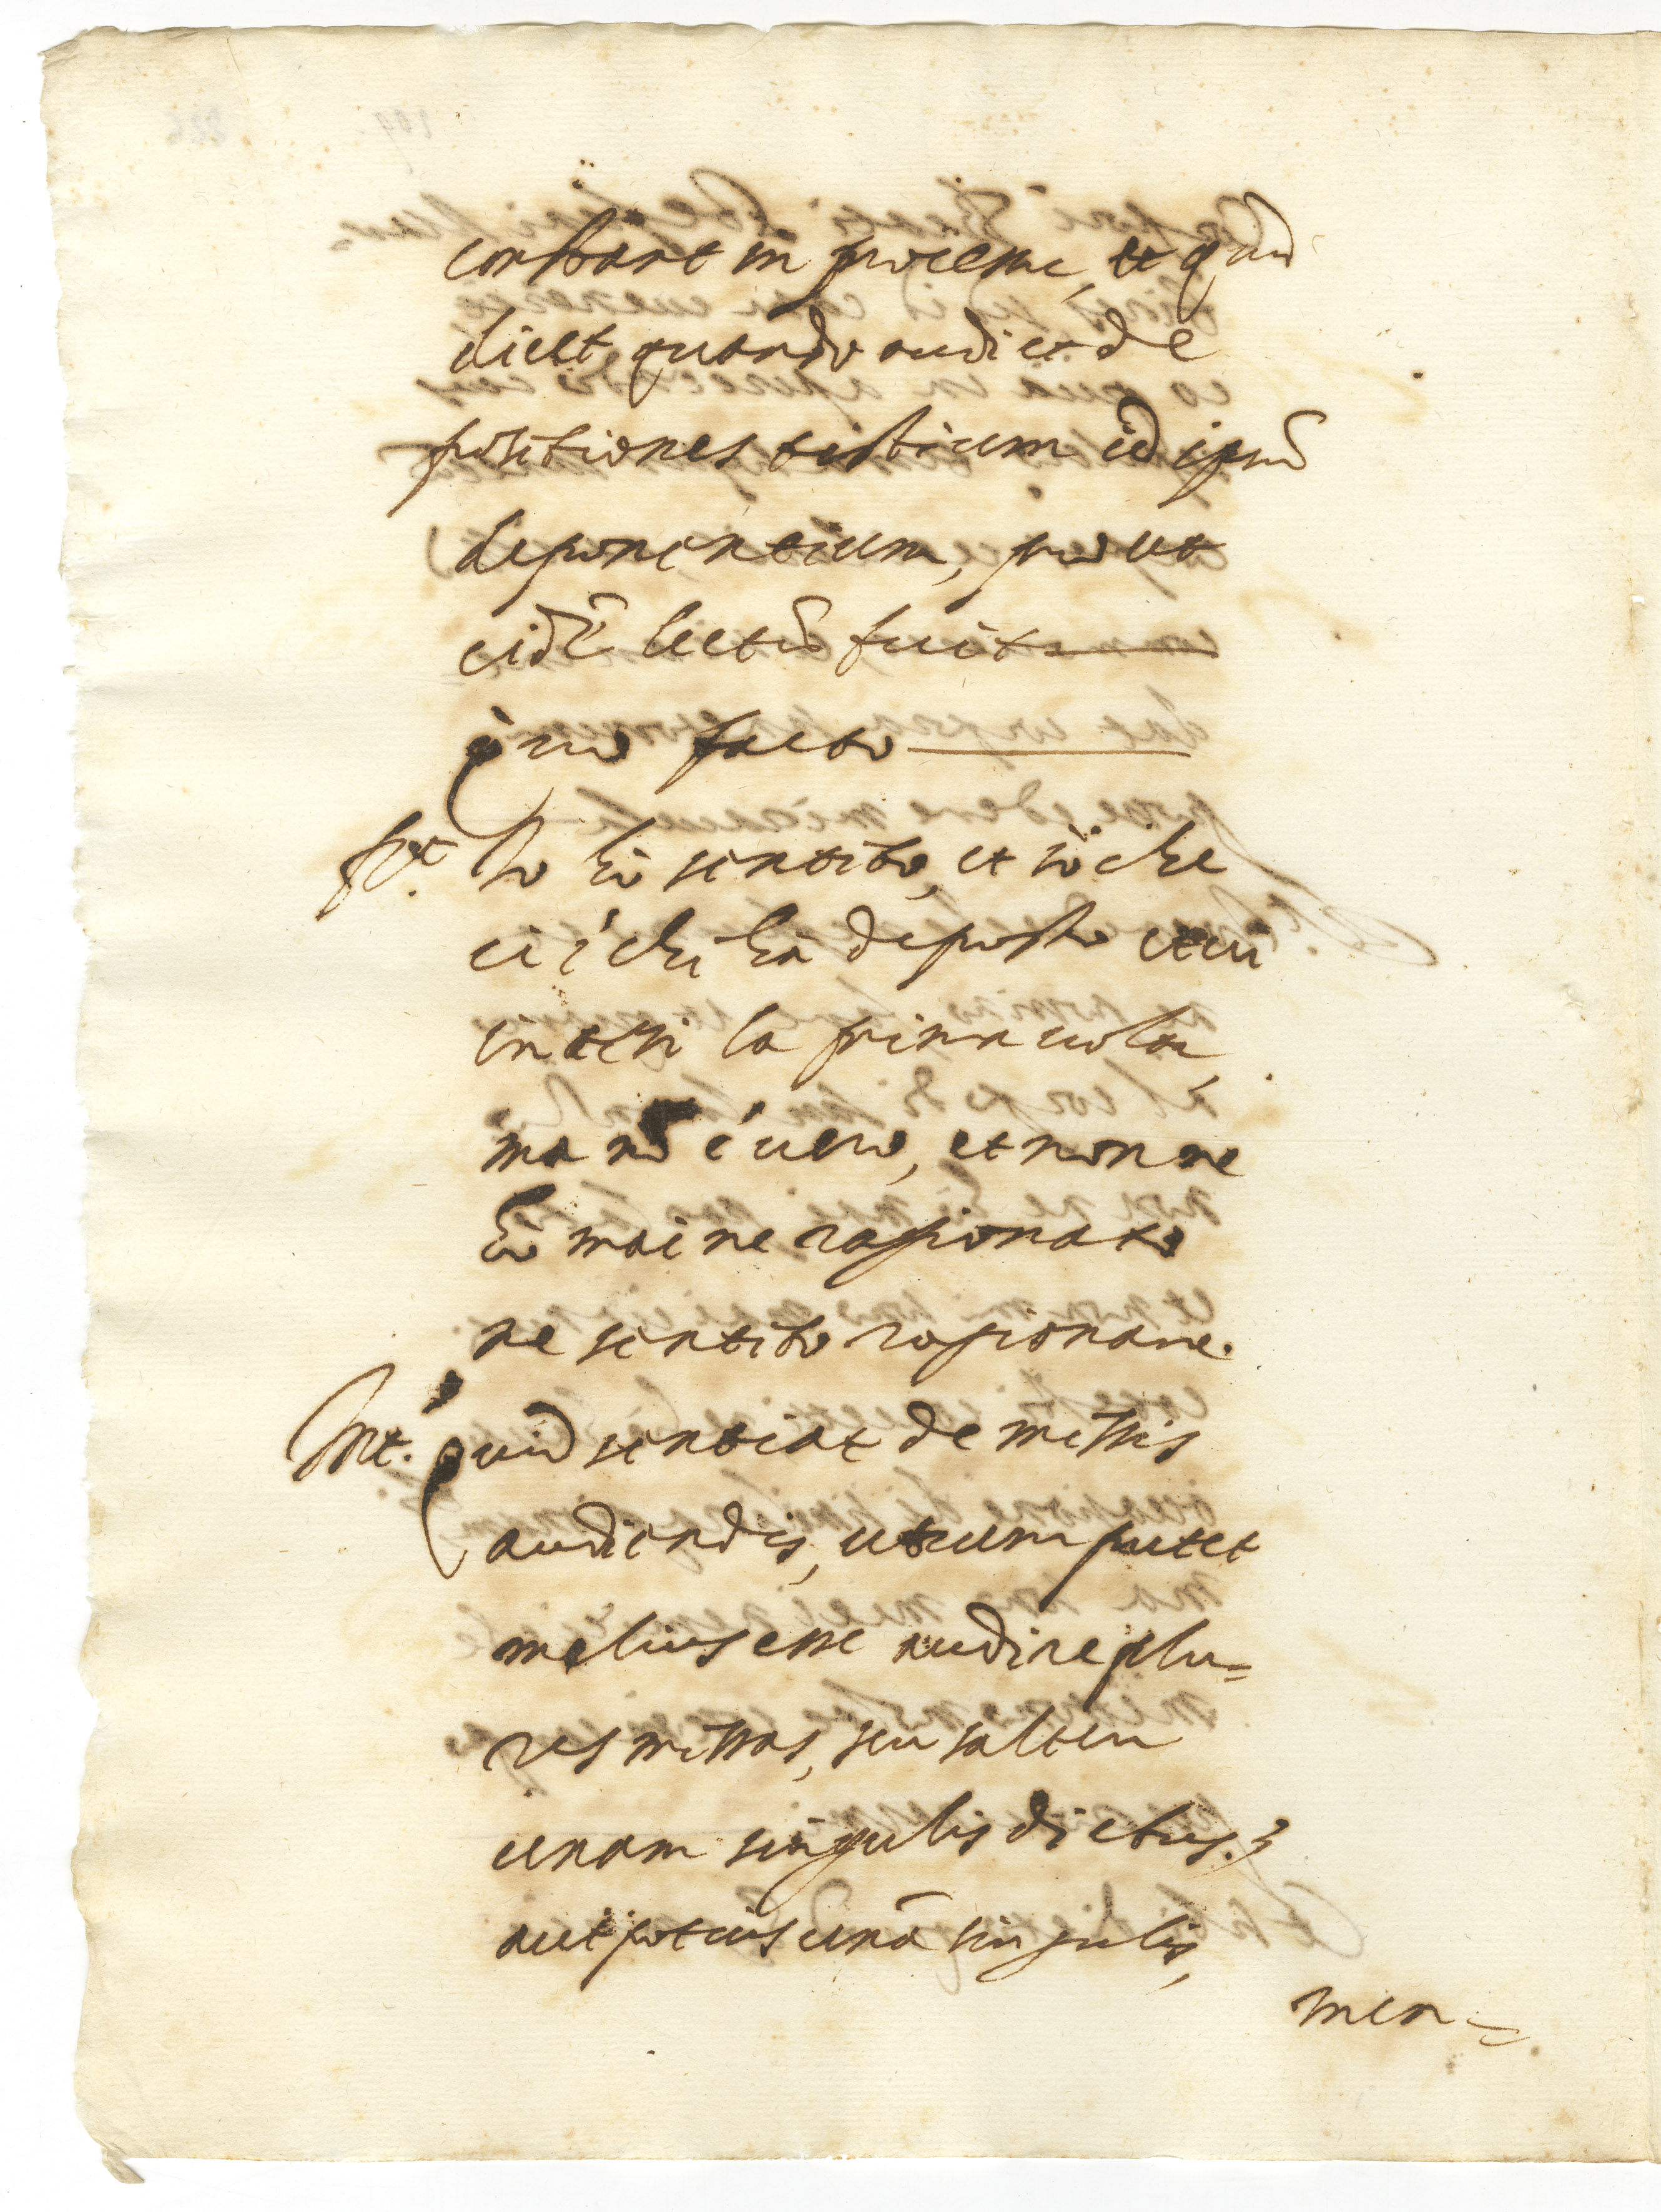 constant in processu, et quid
dicet quando audiet de
positiones testium id ipsũ
deponentium, prout
eidẽ lectũ fuit
quo facto
Rt. Io hò sentito, et sò che
ci è chi hà deposto
intesi la prima volta,
ma nõ è vero, et non ne
hò mai ne ragionato
ne sentito ragionare.
Int. quid sentiat de missis
audiendis, utrum putet
melius esse audire plu=
res missas, seu saltem
unam singulis diebus?
aut potius unã singulis,
men=